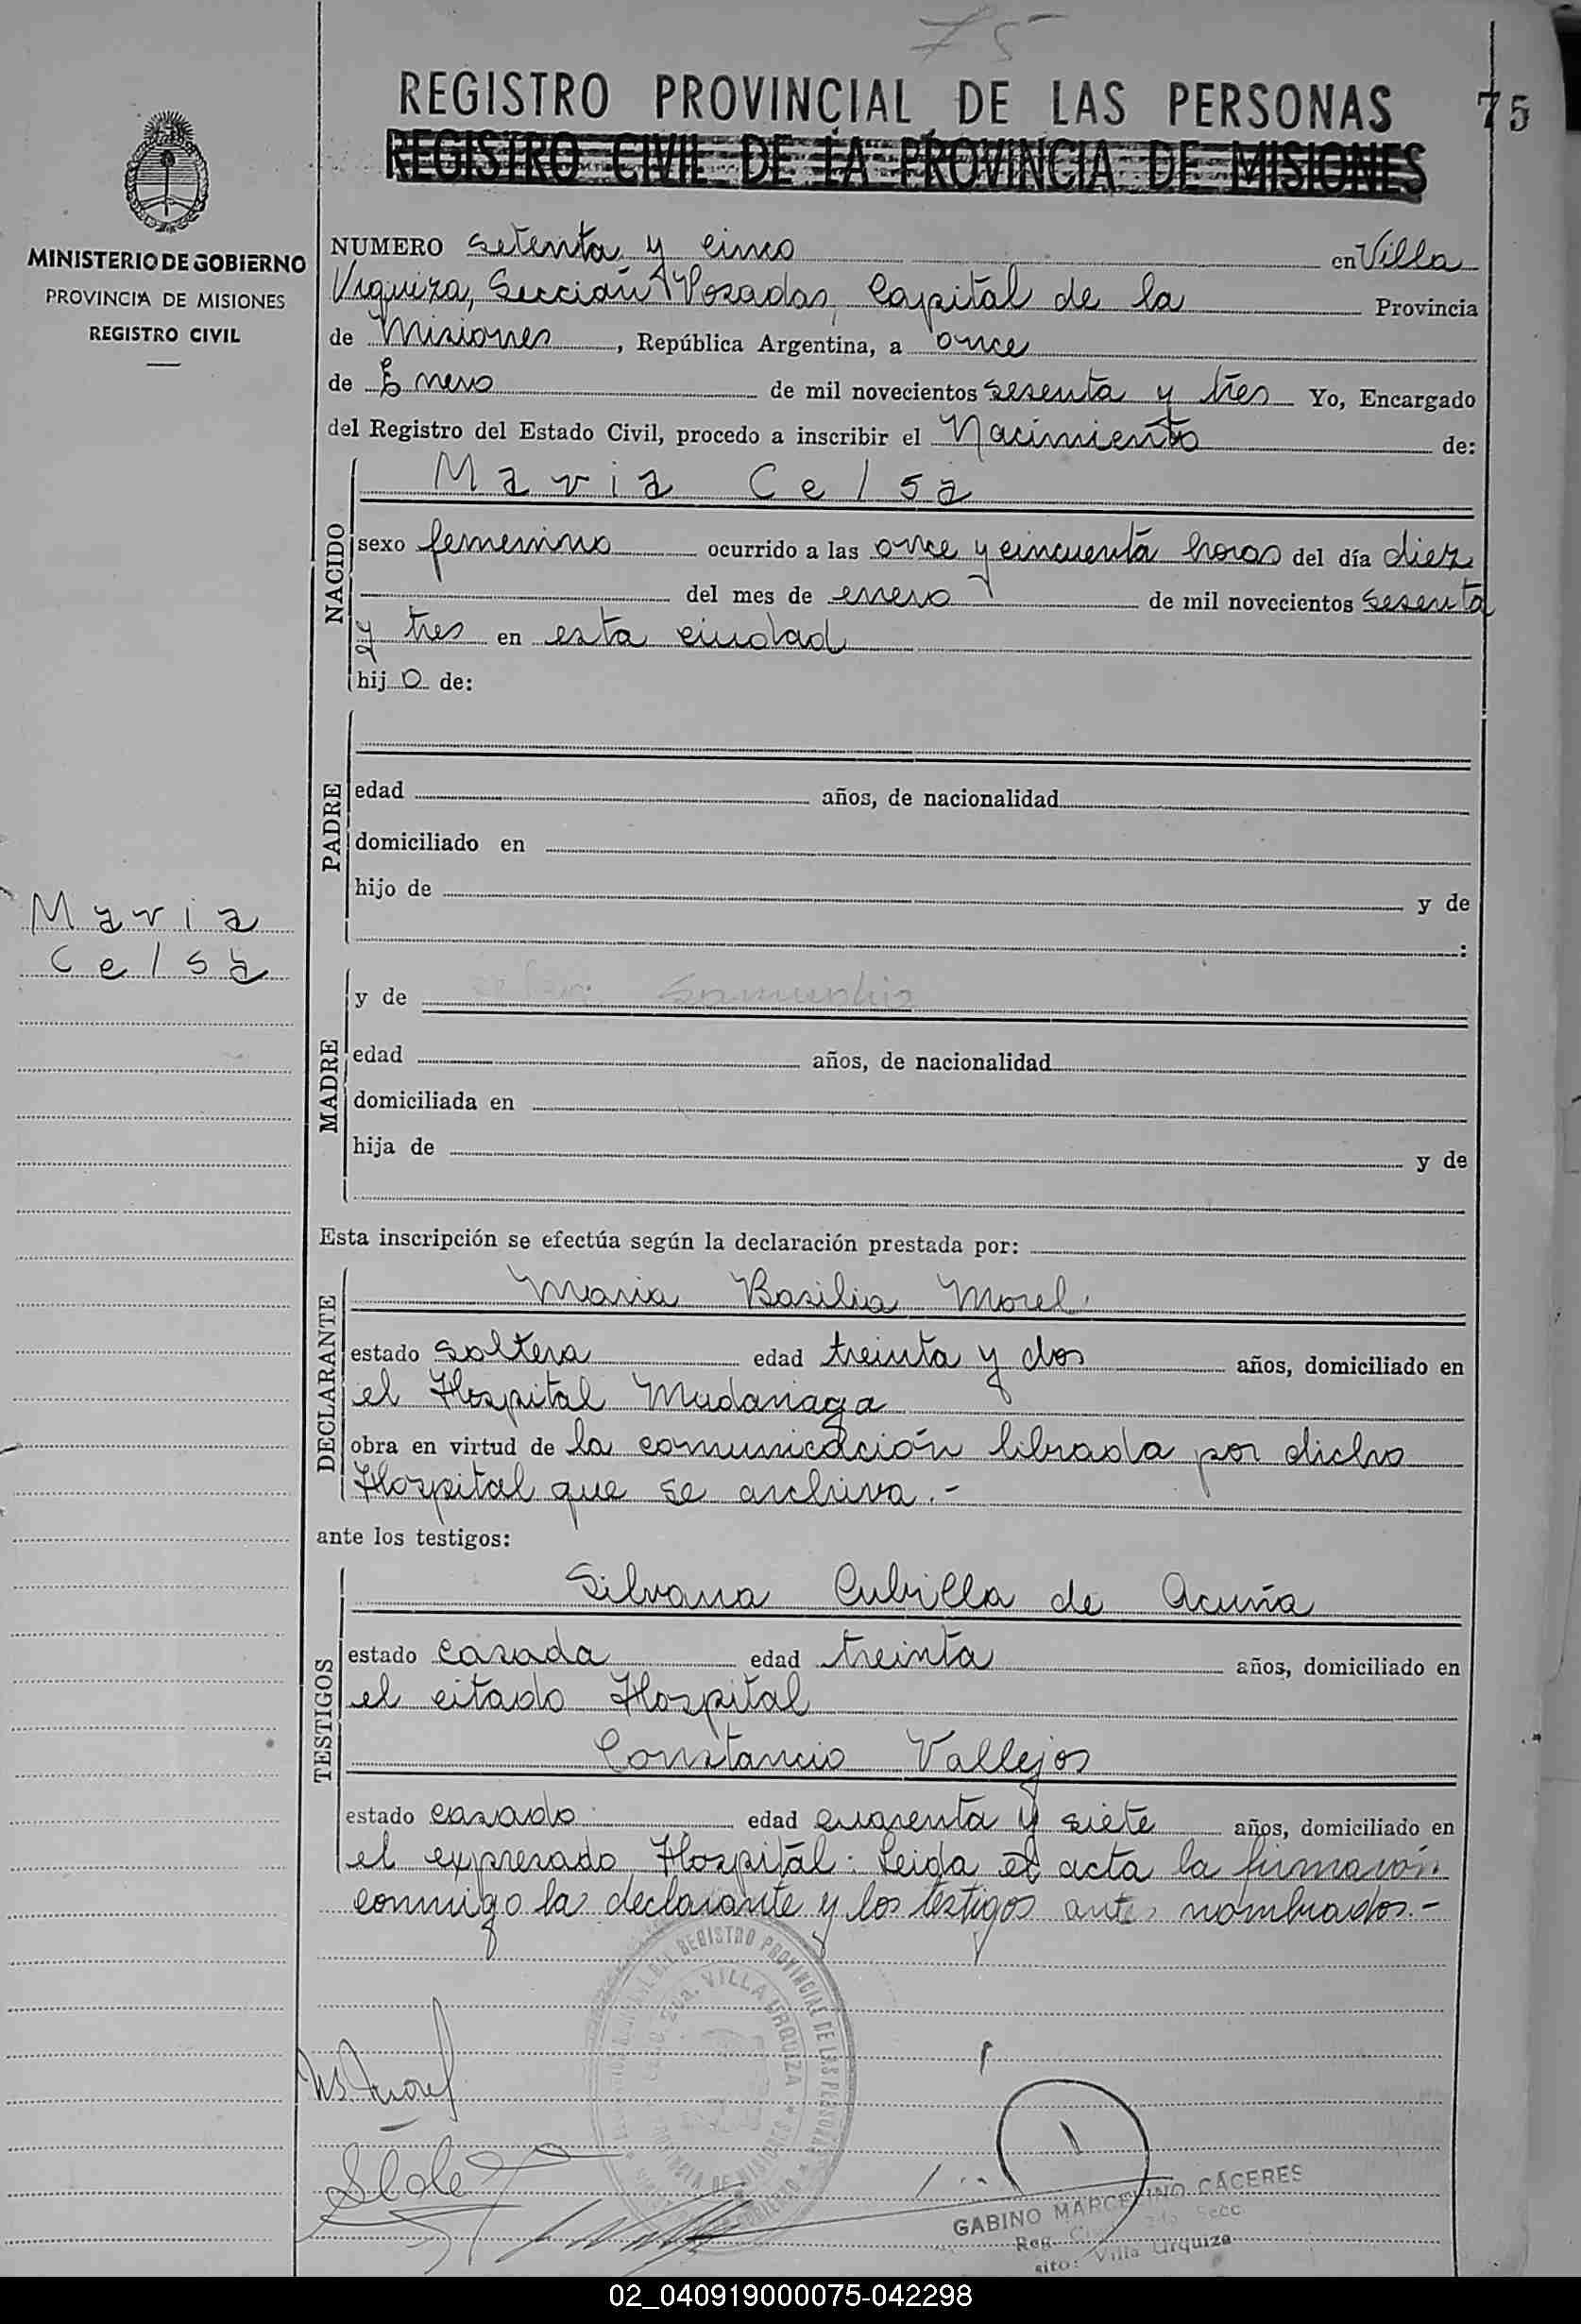 75
REGISTRO PROVINCIAL DE LAS PERSONAS 75
REGISTRO CIVIL DE LA PROVINCIA DE MISIONES
MINISTERIO DE GOBIERNO
PROVINCIA DE MISIONES
REGISTRO CIVIL
NUMERO setenta y cinco en Villa
Urquiza, Sección Posadas, Capital de la Provincia
de Misiones, República Argentina, a once
de Enero de mil novecientos sesenta y tres Yo, Encargado
del Registro del Estado Civil, procedo a inscribir el Nacimiento de:
NACIDO
Maria Celsa
sexo femenino ocurrido a las once y cincuenta horas del día diez
del mes de enero de mil novecientos sesenta
y tres en esta ciudad
hijo de:
PADRE
edad años, de nacionalidad
domiciliado en
hijo de y de
:
Maria
Celsa
MADRE
y de
edad años, de nacionalidad
domiciliada en
hija de y de
Esta inscripción se efectúa según la declaración prestada por:
DECLARANTE
Maria Basilia Morel
estado soltera edad treinta y dos años, domiciliado en
el Hospital Madariaga
obra en virtud de la comunicación librada por dicho
Hospital que se archiva.-
ante los testigos:
TESTIGOS
Silvana Cubilla de Acuña
estado casada edad treinta años, domiciliado en
el citado Hospital
Constancio Vallejos
estado casado edad cuarenta y siete años, domiciliado en
el expresado Hospital. Leida el acta la firmaron
conmigo la declarante y los testigos antes nombrados.-
REGISTRO PROVINCIAL DE LAS PERSONAS
VILLA URQUIZA
PROVINCIA DE MISIONES
Morel
GABINO MARCELINO CÁCERES
Reg. Secc.
sito: Villa Urquiza
02_040919000075-042298